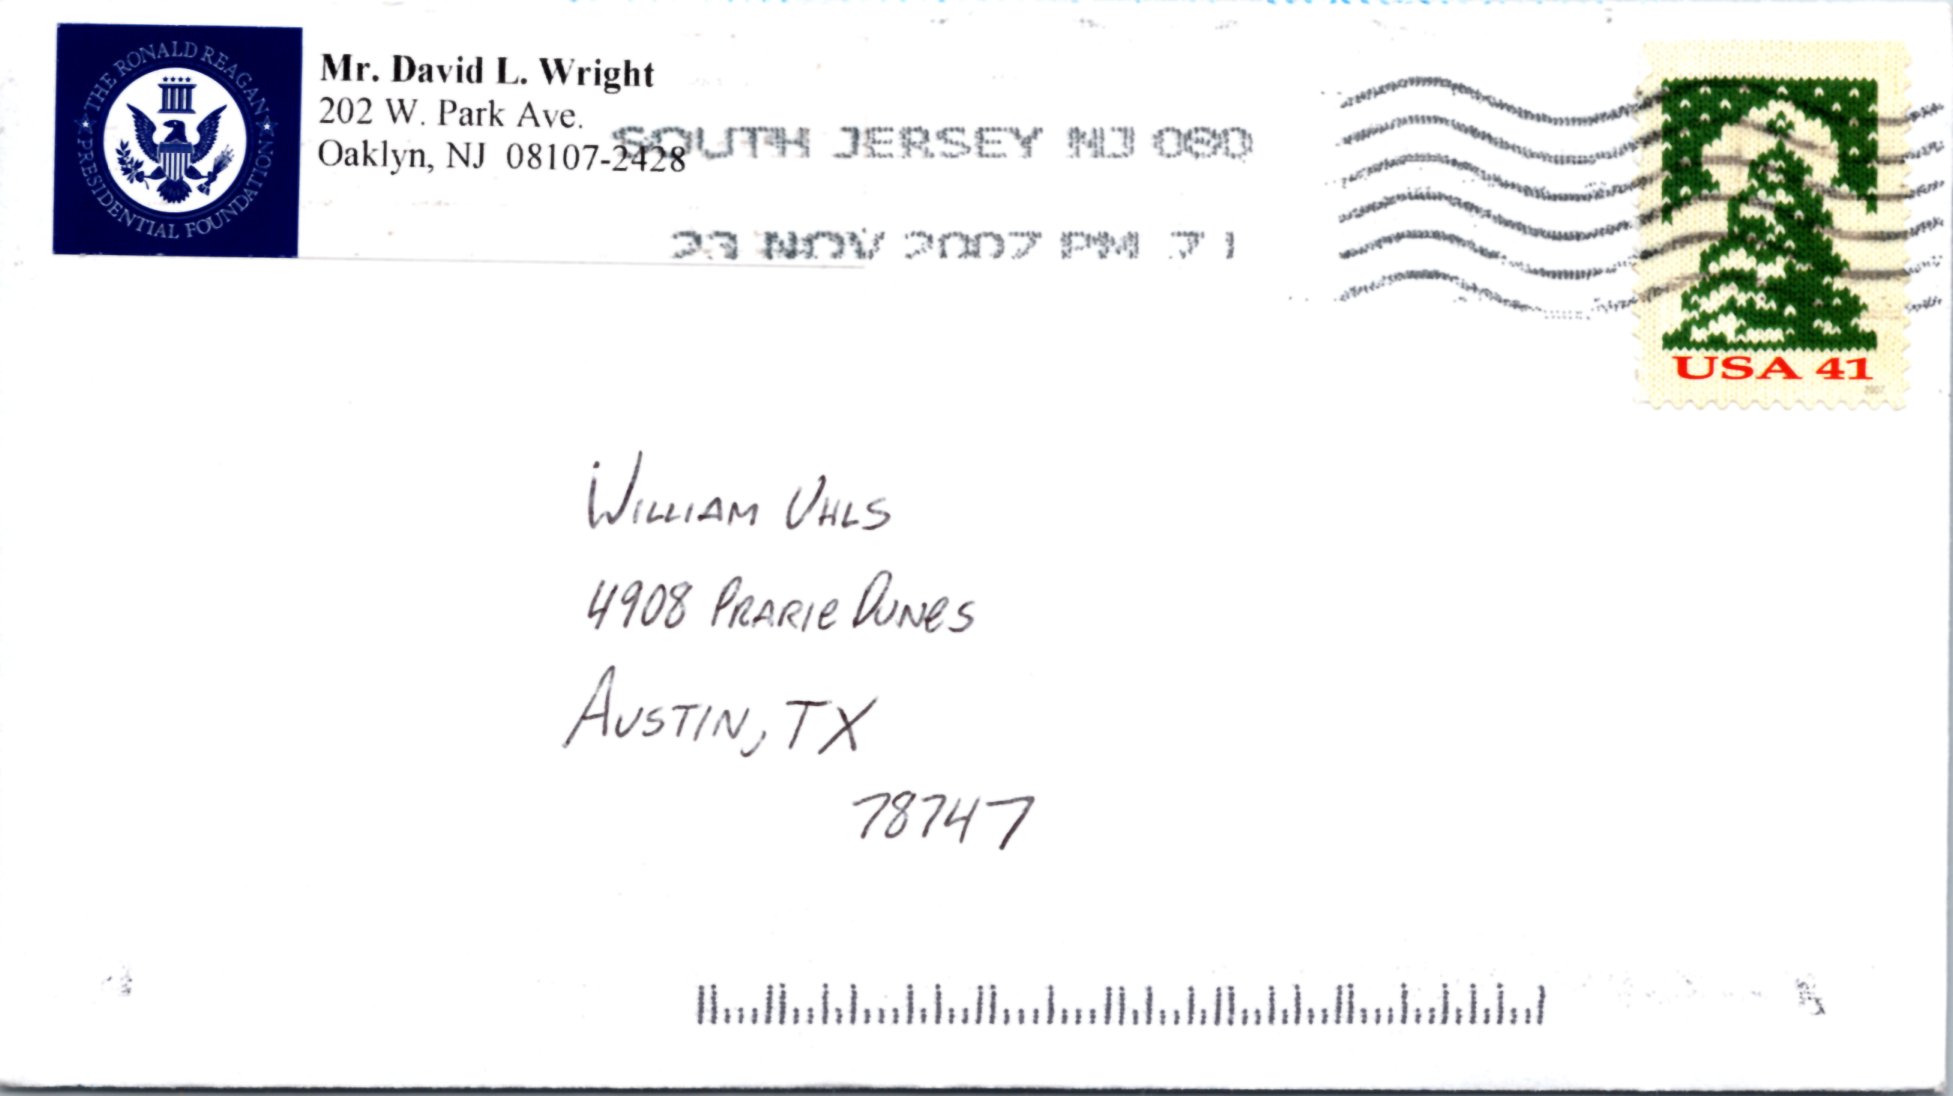 THE RONALD REAGAN
PRESIDENTIAL FOUNDATION
Mr. David L. Wright
202 W. Park Ave.
Oaklyn, NJ 08107-2428
SOUTH JERSEY NJ 080
23 NOV 2007 PM 7 1
USA 41
2007
WILLIAM UHLS
4908 PRARIE DUNES
AUSTIN, TX
78747